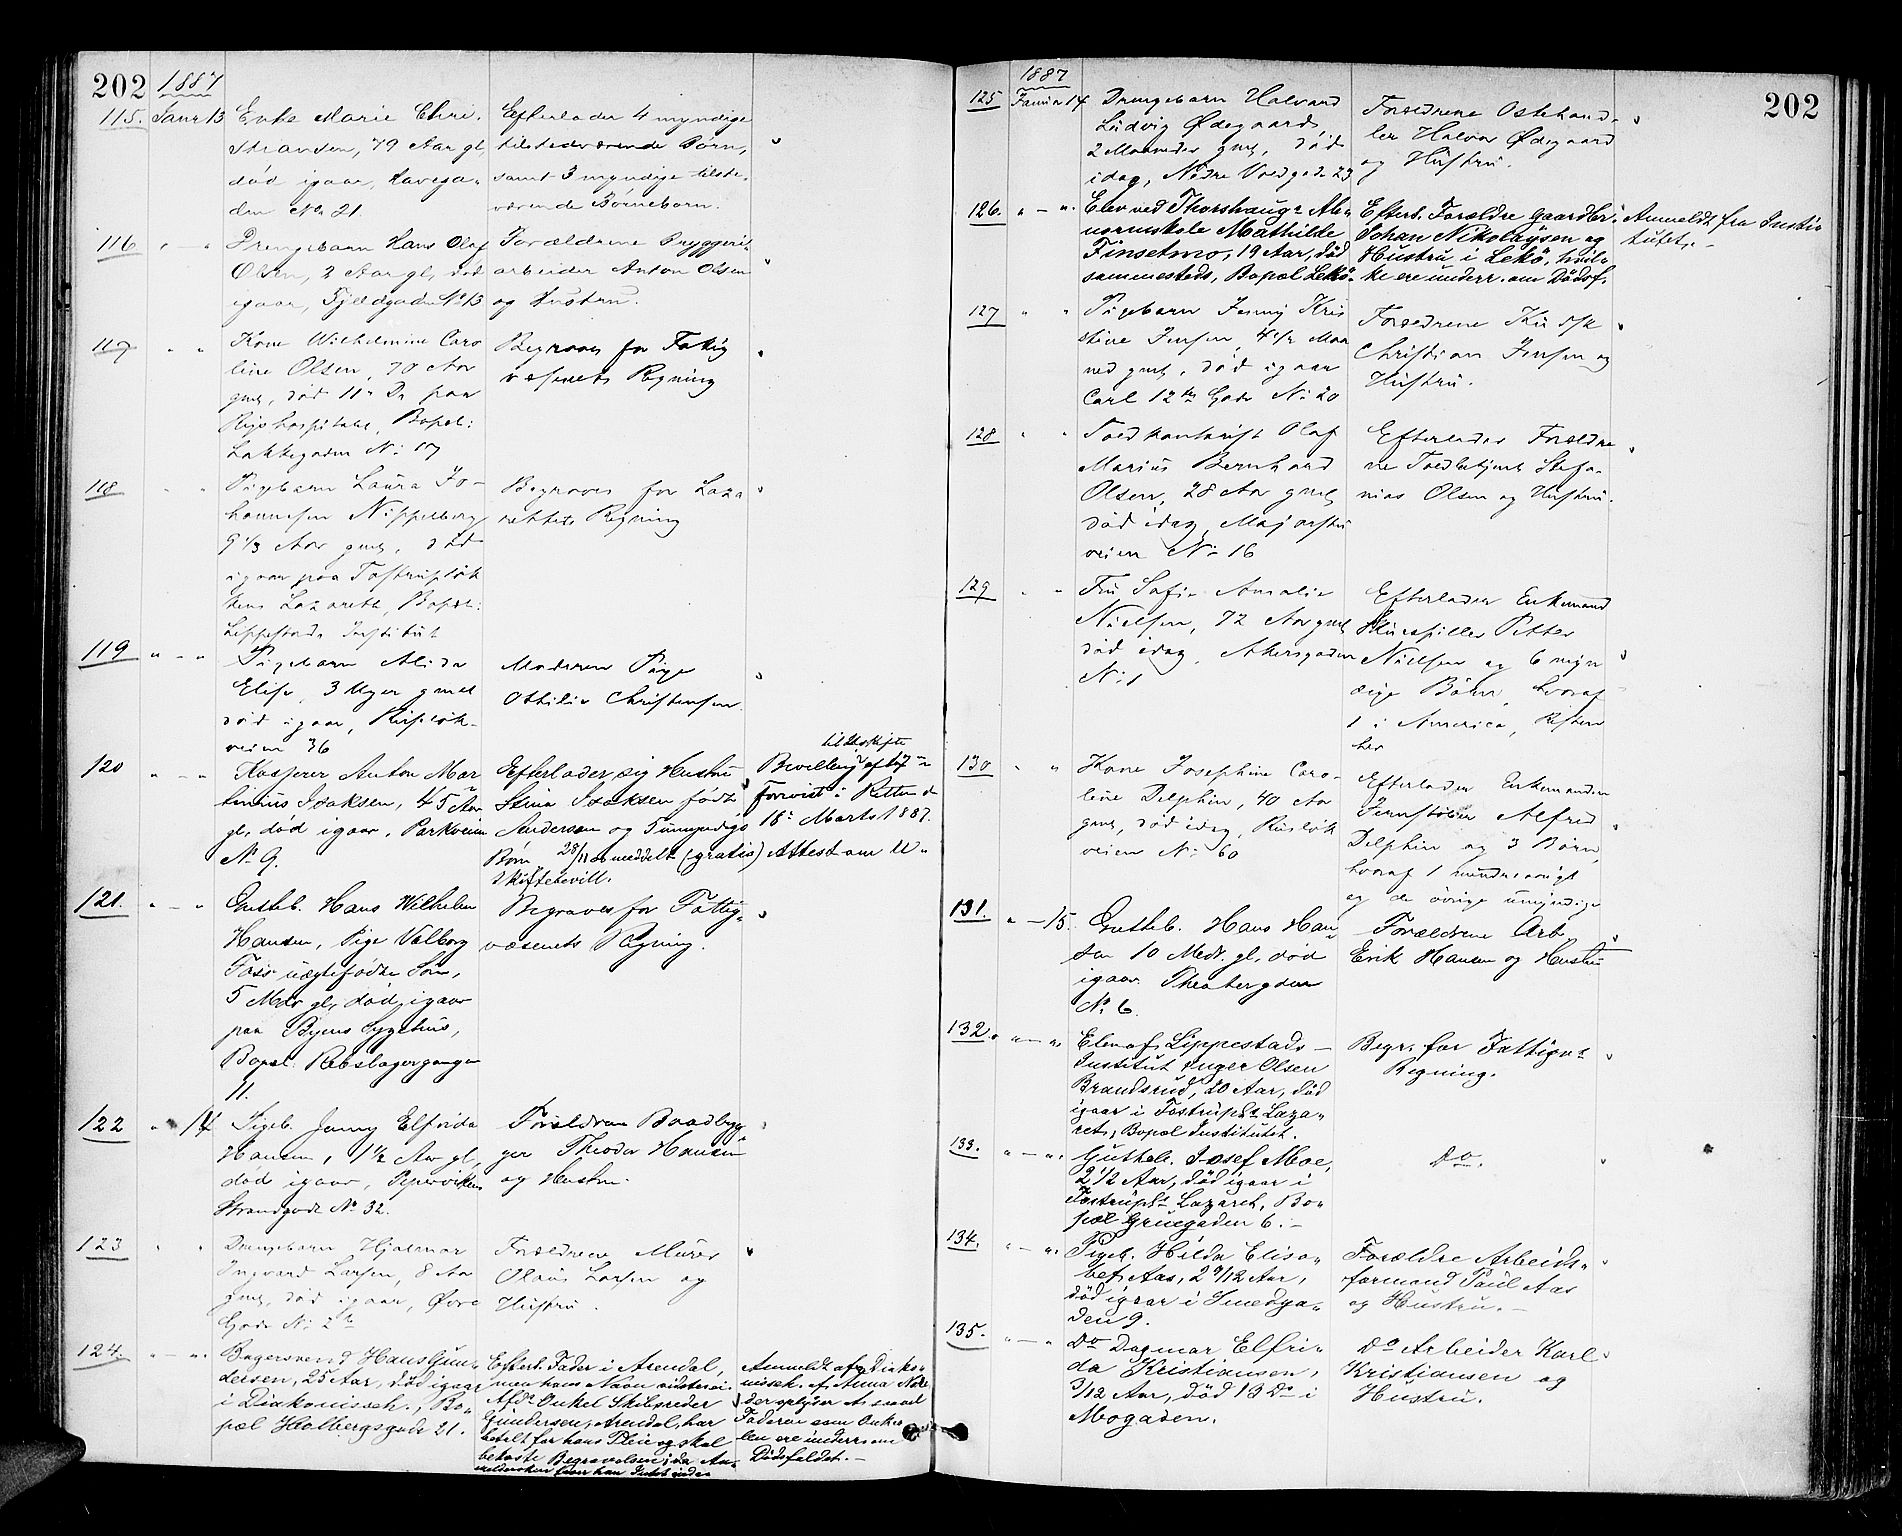 202
1887
115. Janr 13 Enke Marie Chri-
stiansen, 79 Aar gl,
død igaar, Havega-
den No 21.
Efterlader 4 myndige
tilstedværende Børn,
samt 3 myndige tilste-
værende Børnebarn.
116 " — " Drengebarn Hans Olaf
Olsen, 2 Aar gl, død
igaar, Fjeldgaden No 13
Forældrene Bryggeri-
arbeider Anton Olsen
og Hustru.
117 " " Kone Wilhelmine Caro
line Olsen, 70 Aar
gml, død 11 Ds paa
Rigshospitalet, Bopæl:
Lakkegaden No 17
Begraves for Fattig
væsenets Regning
118 " " Pigebarn Laura Jo-
hannesen Nippelberg
9 1/3 Aar gml, død
igaar paa Tostrupløk
kens Lazareth, Bopæl:
Lippestads Institut
Begraves for Laza
rethets Regning
119 " — " Pigebarn Alida
Elise, 3 Uger gml
død igaar, Rusløk-
veien 36
Moderen Pige
Othilie Christensen.
120 " — " Kasserer Anton Mar
tinius Isaksen, 45 Aar
gl, død igaar, Parkveien
No 9.
Efterlader sig Hustru
Stina Isaksen født
Anderson og 5 umyndige
Børn 28/11 meddelt (gratis) Attest om U-
skiftebevill.
til Uskifte
Bevilling
forevist i Retten d
18 Marts 1887.
121. " — " Gutteb. Hans Wilhelm
Hansen, Pige Valborg
Foss uægtefødte Søn,
5 Mdr gl, død igaar
paa Byens Sygehus,
Bopæl. Rebslagergangen
11.
Begraves for Fattig-
væsenets Regning.
122 " 14 Pigeb. Jenny Elfrida
Hansen, 1 1/2 Aar gl,
død igaar, Pipervikens
Strandgade No 32.
Forældrene Baadbyg
ger Theodor Hansen
og Hustru.
123 " " Drengebarn Hjalmar
Ingvard Larsen, 8 Aar
gml, død igaar, Øvre
Gade No 2
Forældrene Murer
Olaus Larsen og
Hustru.
124. " — " Bagersvend Hans Gun-
dersen, 25 Aar, død igaar
i Diakonisseh., Bo-
pæl Holbergsgade 21.
Efterl. Fader i Arendal,
men hans Navn vidstes ei.
Afdes Onkel Skibsreder
Gundersen, Arendal, har
betalt for hans Pleie og skal
bekoste Begravelsen, da An-
Anmeldt af Diako-
nisseh. af Anna
der oplyser at saavel
Faderen som Onke-
len ere underr. om
Dødsfaldet. —
202
1887
125 Januar 14 Drengebarn Halvard
Ludvig Ødegaard,
2 Maaneder gml, død
idag, Nedre Voldgade 23
Forældrene Ostehand-
ler Halvor Ødegaard
og Hustru.
126. " — " Elev ved Thorshaugs Ab-
normskole Mathilde
Finsetmo, 19 Aar, død
sammesteds, Bopæl Lekö.
Efterl. Forældre Gaardbr.
Johan Nikolaysen og
Hustru i Lekö, hvil-
ke ere underr. om Dødsf.
Anmeldt fra Insti-
tutet. —
127 " " Pigebarn Jenny Kris
tine Jensen, 4 1/2 Maa
ned gml, død igaar
Carl 12tes Gade No 20
Forældrene Kudsk
Christian Jensen og
Hustru.
128 " " Toldkontorist Olaf
Marius Bernhard
Olsen, 28 Aar gml,
død idag, Majorstu
veien No 16
Efterlader Forældre
ne Toldbetjent Stefa-
nias Olsen og Hustru.
129 " " Fru Sofie Amalie
Nielsen, 72 Aar gml,
død idag, Akersgaden
No 1
Efterlader Enkemand
Skuespiller Petter
Nielsen og 6 myn
dige Børn, hvoraf
1 i America, Resten
her
130 " " Kone Josephine Caro-
line Delphin, 40 Aar
gml, død idag, Rusløk
veien No 60
Efterlader Enkemanden
Jernstøber Alfred
Delphin og 3 Børn,
hvoraf 1 mindreaarigt
og de øvrige umyndige
131. " — 15. Gutteb. Hans Han-
sen 10 Mdr. gl, død
igaar Theatergaden
No 6.
Forældrene Arb.
Erik Hansen og Hustru
132. " — " Elev af Lippestads —
Institut Inger Olsen
Brandsrud, 20 Aar, død
igaar i Tostrups Laza-
ret, Bopæl Institutet.
Begr. for Fattigvs
Regning.
133. " — " Gutteb. Josef Moe,
2 1/2 Aar, død igaar i
Tostrups Lazaret, Bo-
pæl Grüegaden 6. —
Do.
134. " — " Pigeb. Hilda Elisa-
bet Aas, 2 9/12 Aar,
død igaar i Smedga-
den 9.
Forældre Arbeids-
formand Paul Aas
og Hustru. —
135. " — " Do Dagmar Elfri-
da Kristiansen,
3/12 Aar, død 13 Ds i
Mogaden.
Do Arbeider Karl
Kristiansen og
Hustru.